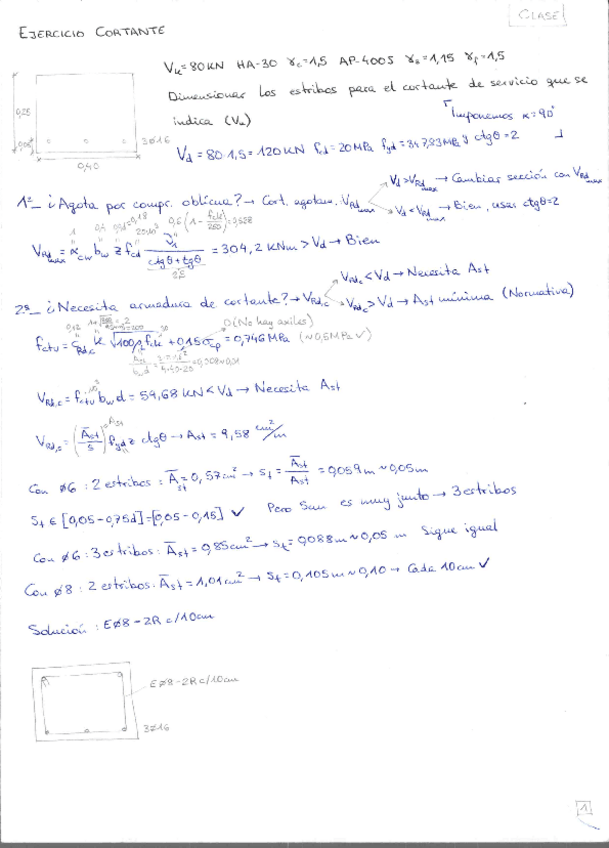 CLASE
EJERCICIO CORTANTE
Vk=80KN HA-30 γc=1,5 AP-400S γs=1,15 γf=1,5
Dimensionar los estribos para el cortante de servicio que se
indica (Vk)
Imponemos α=90°
y ctgθ=2
Vd=80·1,5=120KN fcd=20MPa fyd=347,83MPa
0,25
0,05
3ø16
0,40
1º_ ¿Agota por compr. oblicua?→ Cort. agotam. VRd max
Vd>VRd max → Cambiar sección con VRd max
Vd<VRd max → Bien, usar ctgθ=2
VRd max = αcw bw z fcd ν1 / (ctgθ+tgθ) = 304,2 KNm > Vd → Bien
2,5
2º_ ¿Necesita armadura de cortante?→ VRd,c
VRd,c<Vd → Necesita Ast
VRd,c>Vd → Ast mínima (Normativa)
0 (No hay axiles)
fctv = CRd,c K √100ρl fck + 0,15σcp = 0,746MPa (~0,5MPa✓)
VRd,c = fctv bw d = 59,68 KN < Vd → Necesita Ast
VRd,s = (Ast/s) fyd z ctgθ → Ast = 9,58 cm²/m
Con ø6: 2 estribos: Ast=0,57cm² → st = Ast/Ast = 0,059m ~ 0,05m
St ∈ [0,05-0,75d]=[0,05-0,15] ✓ Pero 5cm es muy junto → 3 estribos
Con ø6: 3 estribos: Ast=0,85cm² → st=0,088m ~ 0,05 m Sigue igual
Con ø8: 2 estribos: Ast=1,01cm² → St=0,105m ~ 0,10 → Cada 10cm ✓
Solución: Eø8-2R c/10cm
Eø8-2R c/10cm
3ø16
1